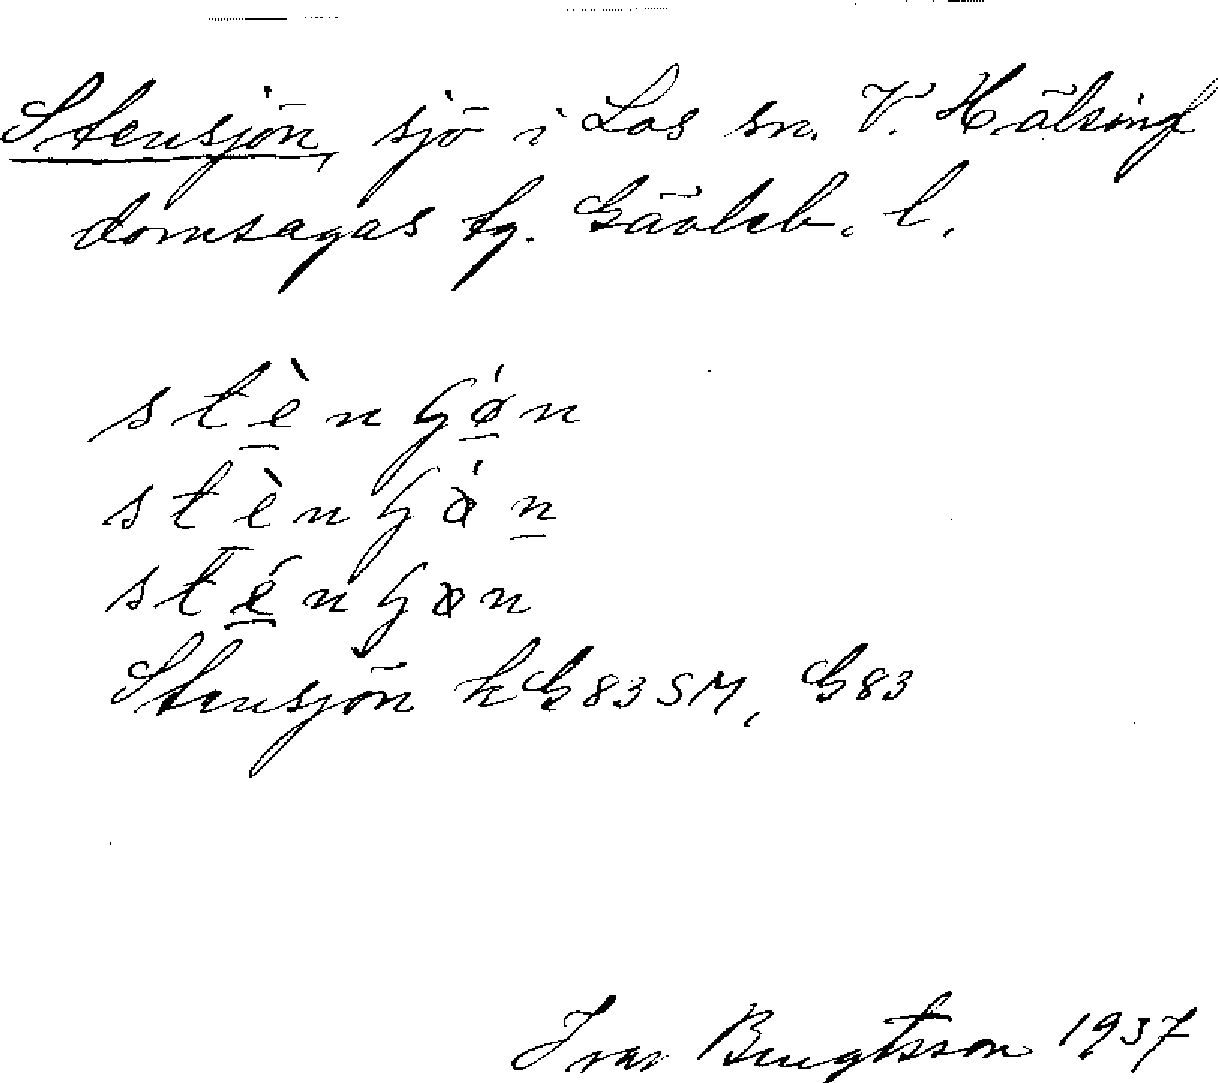 Stensjön, sjö i Los sn. V. Hälsingl
domsagas tg. Gävleb. l.
stènɧǿn
stènɧǿn
sténɧøn
Stensjön kG83SM, G83
Ivar Bengtsson 1937